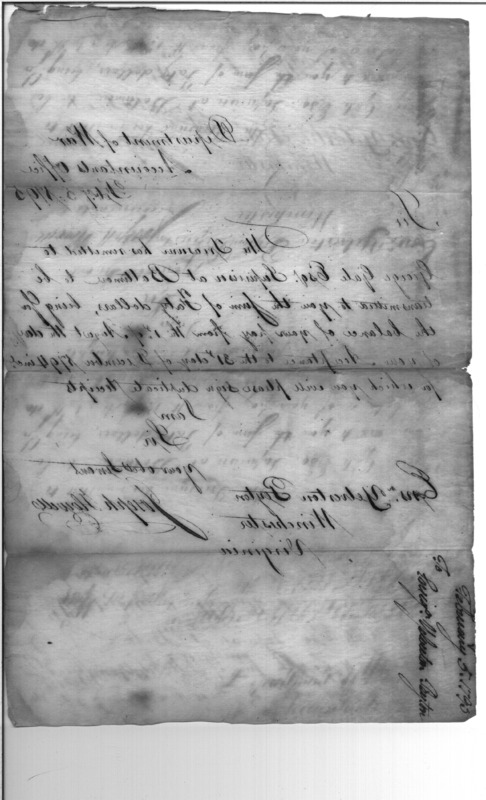 Department of War
Accountants Office
Feby. 5. 1795
Sir
The Treasurer has remitted to
George Gale Esqr. Supervisor at Baltimore to be
transmitted to you the Sum of Forty dollars, being for
the balance of your pay from the
acceptance to the 31st day of December 1794 inc
for which you will please sign duplicate receipts
I am
Sir
your obed Servant
Joseph Howell
Ens. Yelverton Peyton
Winchester
Virginia
February 5. 1795
To
Yelverton Peyton